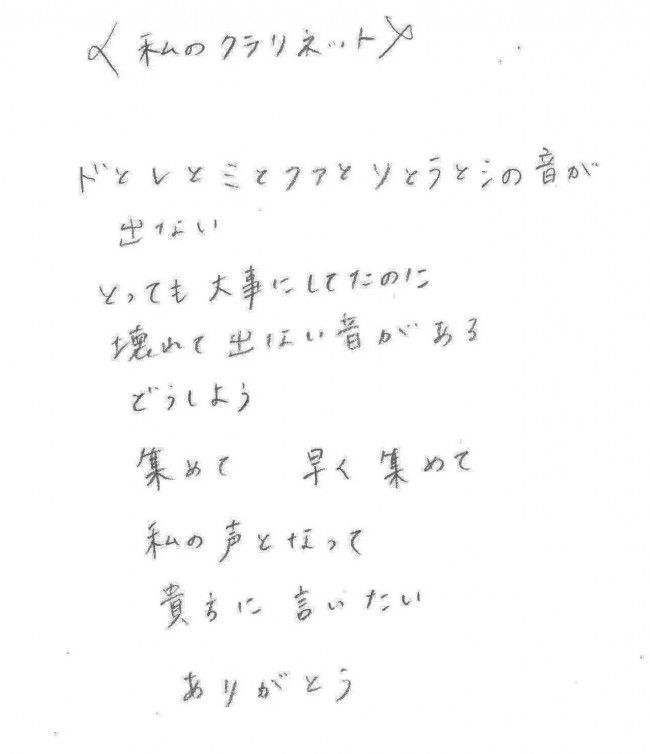 〈私のクラリネット〉
ドとレとミとファとソとラとシの音が
出ない
とっても大事にしてたのに
壊れて出ない音がある
どうしよう
集めて　早く集めて
私の声となって
貴方に言いたい
ありがとう